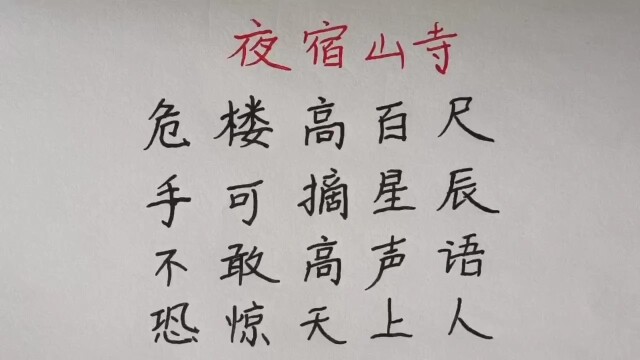 夜宿山寺
危楼高百尺
手可摘星辰
不敢高声语
恐惊天上人